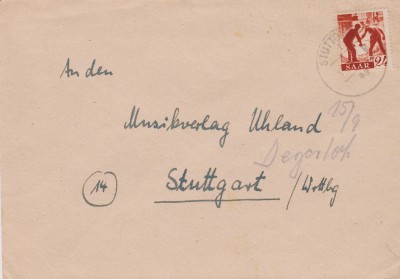 STUTT
SAAR
An den
Musikverlag Uhland
15/9
Degerloch
14 Stuttgart / Wttbg